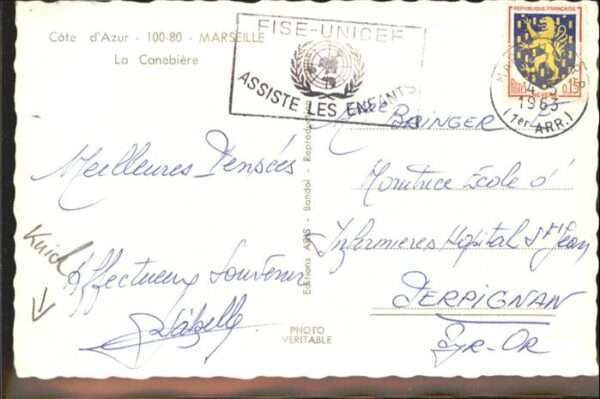 Côte d'Azur - 100-80 - MARSEILLE
La Canebière
FISE-UNICEF
ASSISTE LES ENFANTS
REPUBLIQUE FRANÇAISE
0,15
1963
(1er ARR.)
Meilleures Pensées
Affectueux Souvenir
Editions ARIS - Bandol - Reproduc
PHOTO
VERITABLE
BRINGER
Monitrice École d'
Infirmieres Hopital St Jean
PERPIGNAN
Pyr-Or